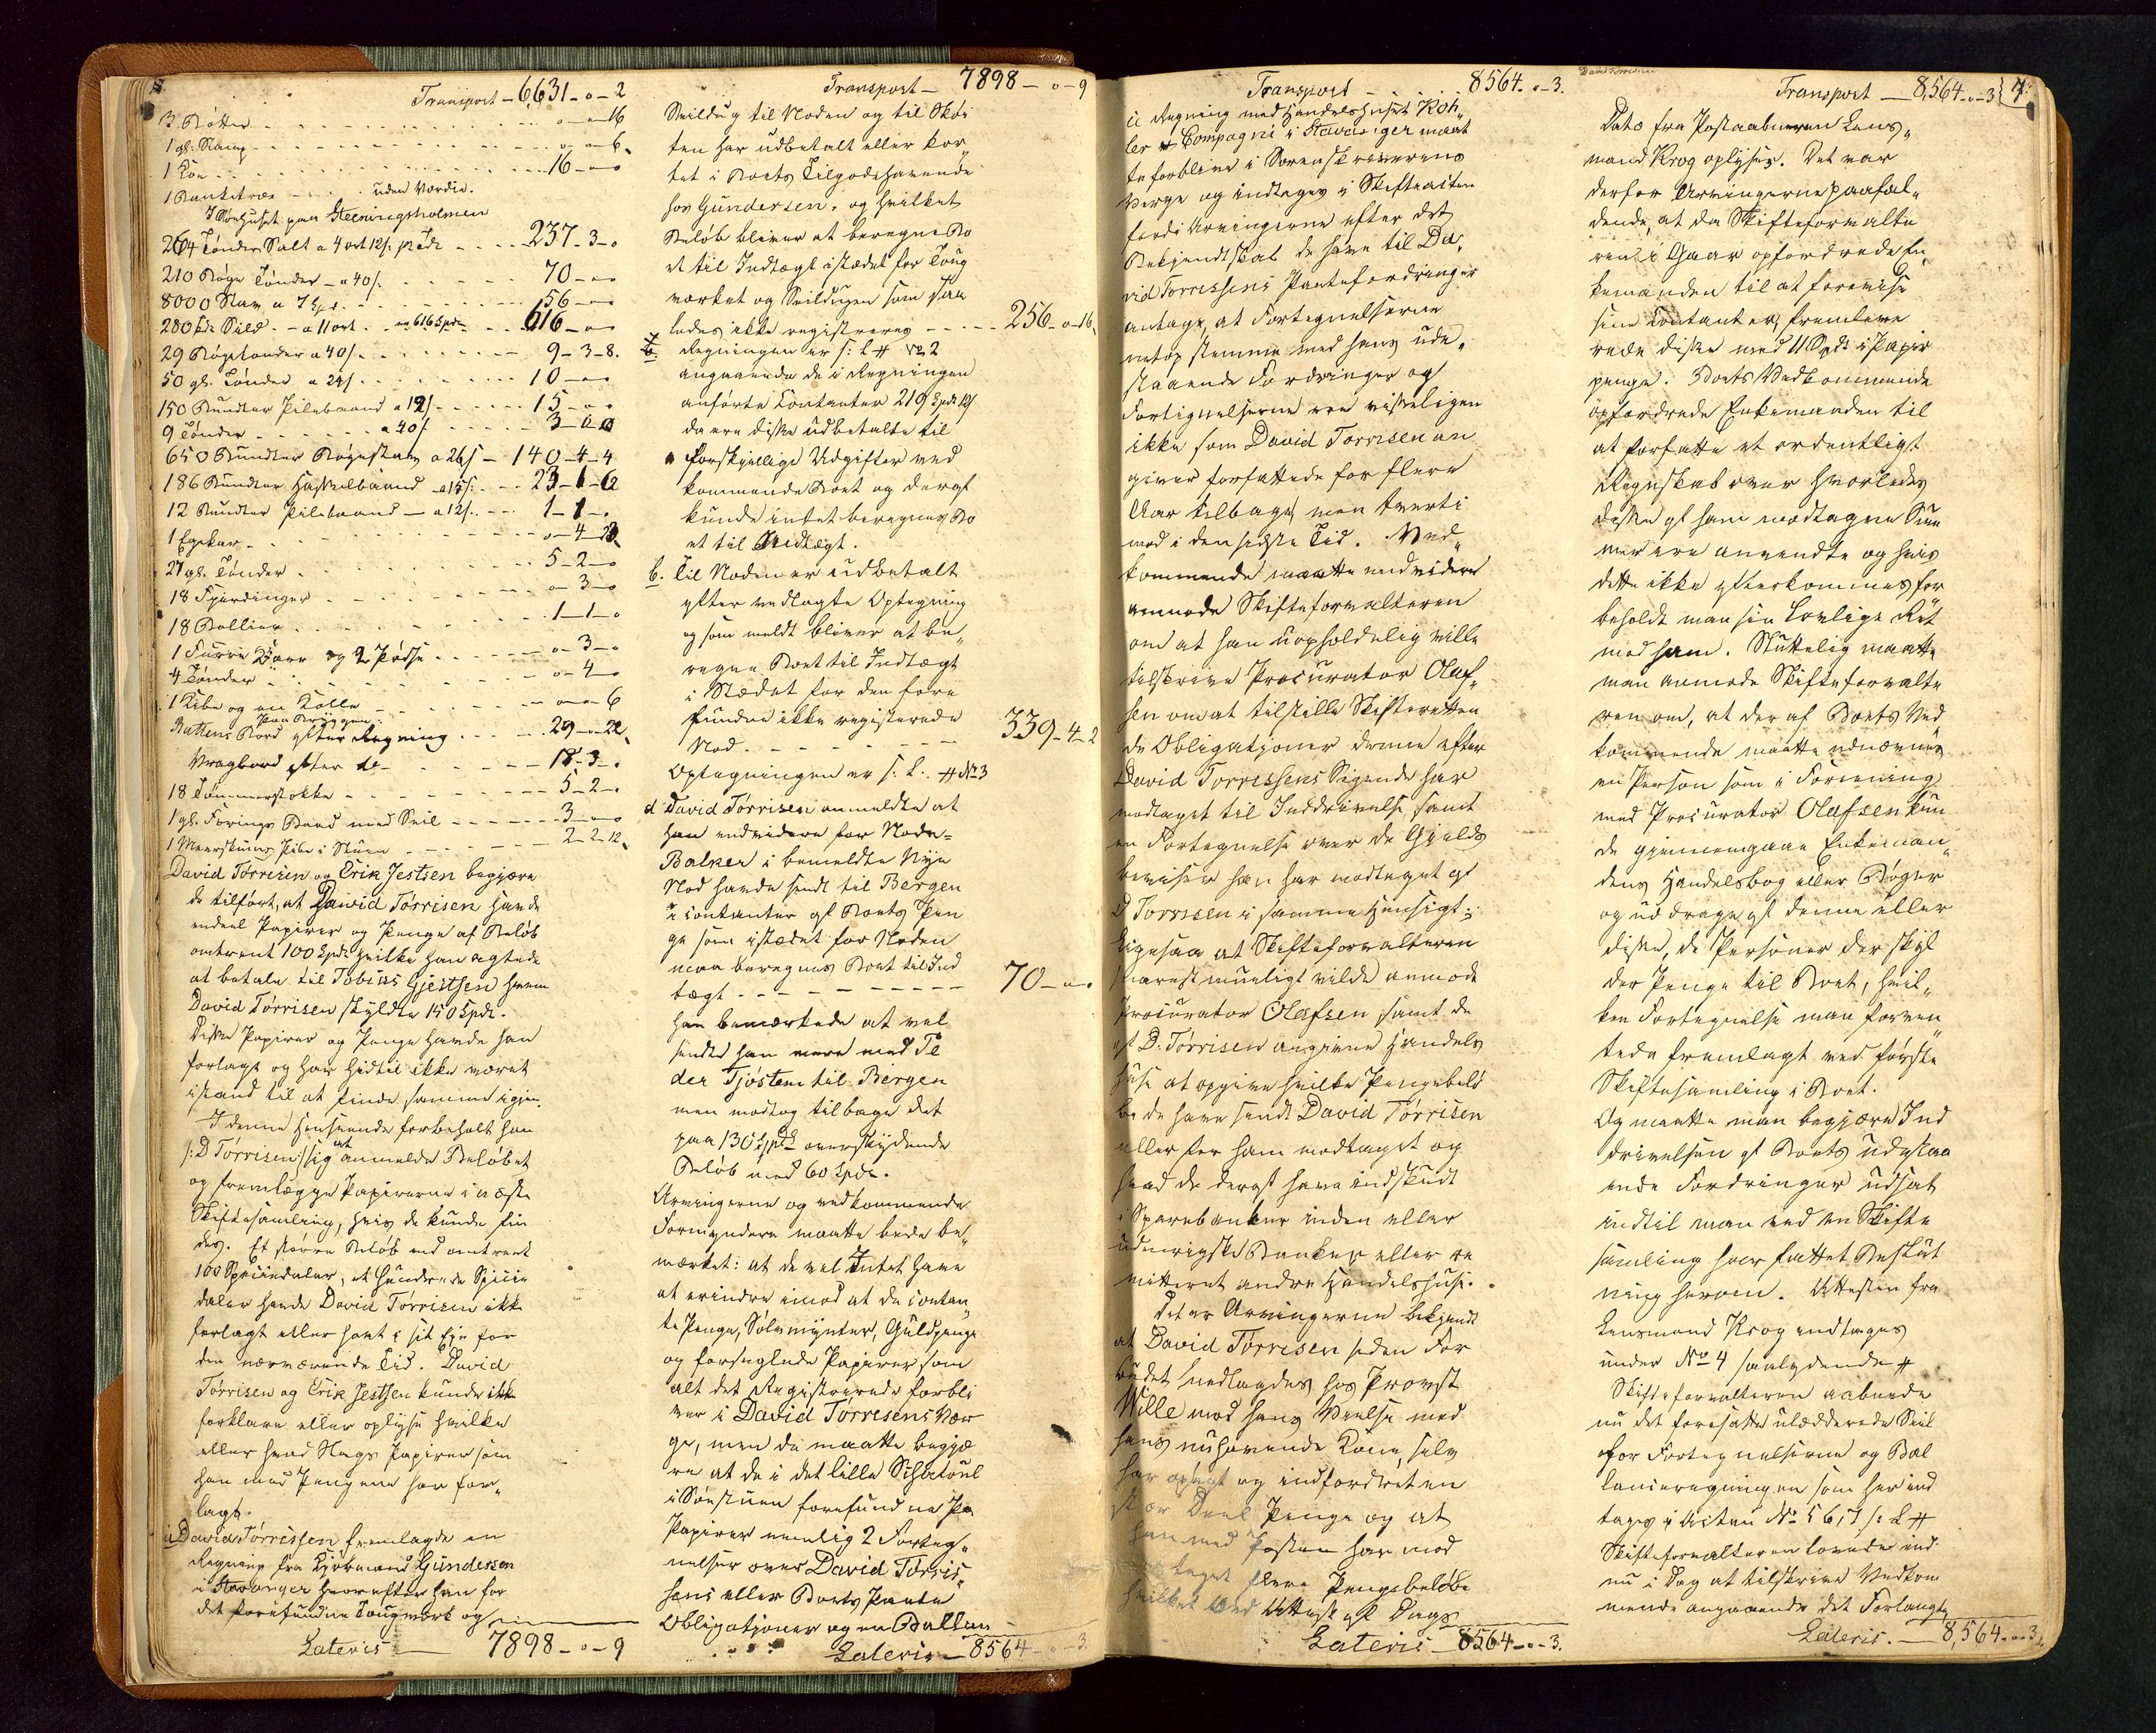 Transport - 6,631 - o - 2
3 Bøtter - - - o - o - 16
1 gl. Kany - - - o - o - 6.
1 Koe - - - 16 - o - o
1 Banketræe - - - uden Værdie.
I Søehuset paa Steeningsholmen
264 Tønder Salt a 4 ort 12 s: pr Td: - - - 237 - 3 - o
210 Bøge Tønder - a 40 s. - - - 70 - o - o
8000 Stav a 7 Spd. - - - 56 - o - o
280 Tdr Sild. - a 11 ort. - 616 Spdr. - - - 616 - o - o
29 Bøgetønder a 40 s. - - - 9 - 3 - 8.
50 gl. Tønder a 24 s. - - - 10 - o - o
150 Bundter Pilebaand a 12 s. - - - 15 - o - o
9 Tønder - - - a 40 s. - - - 3 - o - o
650 Bundter Bøgestav a 26 s - 140 - 4 - 4
186 Bundter Hasselbaand - a 15 s: - - - 23 - 1 - 6
12 Bundter Pilebaand - a 12 s. - - - 1 - 1 - o
1 Egekar - - - o - 4 -
27 gl. Tønder - - - 5 - 2 - o
18 Fjerdinger - - - o - 3 - o
18 Ballier - - - 1 - 1 - o
1 Furre Baar og 2 Pødse - - - o - 3 - o
4 Tønder - - - o - 4 - o
1 Kibe og en Kolle - - - o - o - 6
paa Bryggen:
Battens Bord efter Regning - - - 29 - o - 22
Vragbord efter do - - - 18 - 3 - o
18 Tømmerstokke - - - 5 - 2 - o
1 gl. Førings Baad med Seil - - - 3 - o - o
1 Meerskums Pibe i Stuen - - - 2 - 2 - 12
David Tørrisen og Erik Jestsen begjære
de tilført, at David Tørrisen havde
endeel Papirer og Penge af Beløb
omtrent 100 Spdr. hvilke han agtede
at betale til Tobias Gjestsen hvem
David Tørrisen skyldte 150 Spdr.
Disse Papirer og Penge havde han
forlagt og har hidtil ikke været
istand til at finde samme igjen.
I denne Henseende forbeholdt han
/: D Tørrisen :/ sig at anmelde Beløbet
og fremlægge Papirerne i næste
Skiftesamling, hvis de kunde fin
des. Et større Beløb end omtrent
100 Speciedaler, et Hundrede Specie
daler havde David Tørrisen ikke
forlagt eller havt i sit Eje for
den nærværende Tid. David
Tørrisen og Erik Jestsen kunde ikke
forklare eller oplyse hvilke
eller hvad Slags Papirer som
han med Pengene har for„
lagt.
a David Tørrissen fremlagde en
Regning fra Kjøbmand Gundersen
i Stavanger hvorefter han for
det forefundne Tougværk og
Lateris - 7898 - o - 9
Transport - 7898 - o - 9
Seildug til Noden og til Skøi
ten har udbetalt eller kor
tet i Boets Tilgodehavende
hos Gundersen. og hvilket
Beløb bliver at beregne Bo
et til Indtægt istædet for Toug
værket og Seildugen som saa
ledes ikke registreres - - - 256 - o - 16
Regningen er s: L # No 2
angaaende de i Regningen
anførte Contanter 219 Spdr 12 s
da ere disse udbetalte til
forskjellige Udgifter ved
kommende Boet og deraf
kunde intet beregnes Bo
et til Indtægt.
b. Til Noden er udbetalt
efter vedlagte Optegning
og som meldt bliver at be„
regne Boet til Indtægt
i Stædet for den fore
fundne ikke registerede
Nod. - - - 339 - 4 - 2
Optegningen er s: L. # No 3
d David Tørrisen anmeldte at
han endvidere for Node-
Balker i bemeldte Nye
Nod havde sendt til Bergen
i contanter af Boets Pen
ge som istædet for Noden
maa beregnes Boet til Ind
tægt - - - 70 - o - o
han bemærkede at vel
sendte han mere med Pe
der Tjøstem til Bergen
men modtog tilbage det
paa 130 Spdr overskydende
Beløb med 60 Spdr.
Arvingerne og vedkommende
Formyndere maatte bede be„
mærket: at de vel Intet have
at erindre imod at de contan
te Penge, Sølvmynter, Guldpenge
og forseglede Papirer som
alt det Registrerede forbli
ver i David Tørresens Vær
ge, men de maatte begjæ
re at de i det lille Schatoul
i Søestuen forefundne Pa
Papirer nemlig 2 Forteg„
nelser over David Tørris„
sens eller Boets Pante
Obligatjoner og en Ballan
Lateris - 8564 - o - 3
Transport - - - 8564 - o - 3.
ce Regning med Handelshuset Köh„
ler & Compagni i Stavanger maat
te forblive i Sorenskriverens
Værge og indtages i Skifteacten
fordi Arvingerne efter det
Bekjendtskab de have til Da„
vid Tørrissens Pantefordringer
antage, at Fortegnelserne
netop stemme med hans ude„
staaende Fordringer og
Fortegnelserne ere visseligen
ikke som David Tørrisen an
giver forfattede for flere
Aar tilbage men tverti
mod i den sidste Tid. Ved„
kommende maatte endvidere
anmode Skifteforvalteren
om at han uopholdelig ville
tilskrive Procurator Olaf„
sen om at tilstille Skifteretten
de Obligatjoner denne efter
David Tørrissens Sigende har
modtaget til Inddrivelse samt
en Fortegnelse over de Gjelds
beviser han har modtaget af
D Tørrisen i samme Hensigt;
Ligesaa at Skifteforvalteren
snarest mueligt vilde anmode
Procurator Olafsen samt de
af D. Tørrisen angivne Handels
huse at opgive hvilke Pengebelø
be de have sendt David Tørrisen
eller for ham modtaget og
hvad de deraf have indskudt
i Sparebanker inden eller
udenrigske Banker eller re
mitteret andre Handelshuse.
Det er Arvingerne bekjendt
at David Tørrisen siden For
budet nedlagdes hos Provst
Wille mod hans Vielse med
hans nuhavende Kone, selv
har opsagt og indfordret en
stor Deel Penge og at
han med Posten har mod
taget flere Pengebeløbe
hvilket ved Attest af Dags
Lateris - 8564 - o - 3.
David Tørrisen
Transport - 8,564 - o - 3 7.
Dato fra Postaabneren Lens„
mand Krog oplyses. Det var
derfor Arvingerne paafal„
dende, at da Skifteforvalte
ren i Gaar opfordrede En„
kemanden til at forevise
sine Contanter, fremleve
rede disse med 11 Spdr i Papir
penge. Boets Vedkommende
opfordrede Enkemanden til
at forfatte et ordentligt
Regnskab over hvorledes
disse af ham modtagne Sum
mer ere anvendte og hvis
dette ikke efterkommes for
beholdt man sin Lovlige Ret
mod ham. Sluttelig maatte
man anmode Skifteforvalte
ren om, at der af Boets Ved
kommende maatte udnævnes
en Person som i Forening
med Procurator Olafsen kun
de gjennemgaae Enkeman„
dens Handelsbog eller Bøger
og uddrage af denne eller
disse, de Personer der skyl
der Penge til Boet, hvil„
ken Fortegnelse man forven
tede fremlagt ved første
Skiftesamling i Boet.
Og maatte man begjære Ind
drivelsen af Boets udestaa
ende Fordringer udsat
indtil man ved en Skifte
samling har fattet Beslut
ning herom. Attesten fra
Lensmand Krog indtages
under No 4 saalydende #
Skifteforvalteren aabnede
nu det foresatte Seil
for Fortegnelserne og Bal
lanceregningen som her ind
tages i Acten No 5 6, 7 s: L #
Skifteforvalteren lovede end
nu i Dag at tilskrive Vedkom
mende angaaende det Forlangte
Lateris. - 8,564 - o - 3